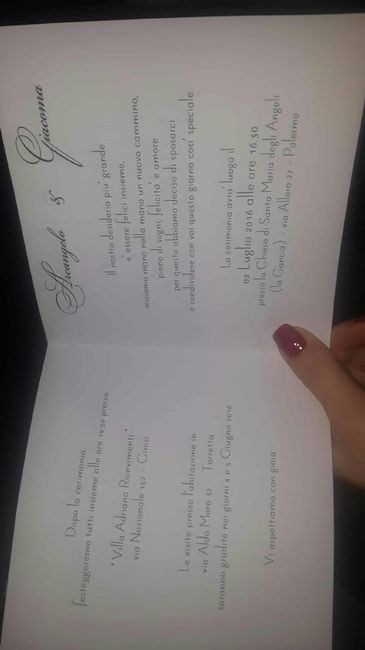 Arcangelo & Giacoma
Il nostro desiderio piu' grande
e' essere felici insieme,
iniziamo mano nella mano un nuovo cammino,
pieno di sogni, felicita' e amore
per questo abbiamo deciso di sposarci
e condividere con voi questo giorno cosi' speciale.
La cerimonia avra' luogo il
02 Luglio 2016 alle ore 16,30
presso la Chiesa di Santa Maria degli Angeli
(la Gancia) - via Alloro 27 - Palermo
Dopo la cerimonia,
festeggeremo tutti insieme alle ore 19,30 presso
"Villa Adriana Ricevimenti"
via Nazionale 157 - Cinisi
Le visite presso l'abitazione in
via Aldo Moro 52 Torretta
saranno gradite nei giorni 4 e 5 Giugno 2016
Vi aspettiamo con gioia